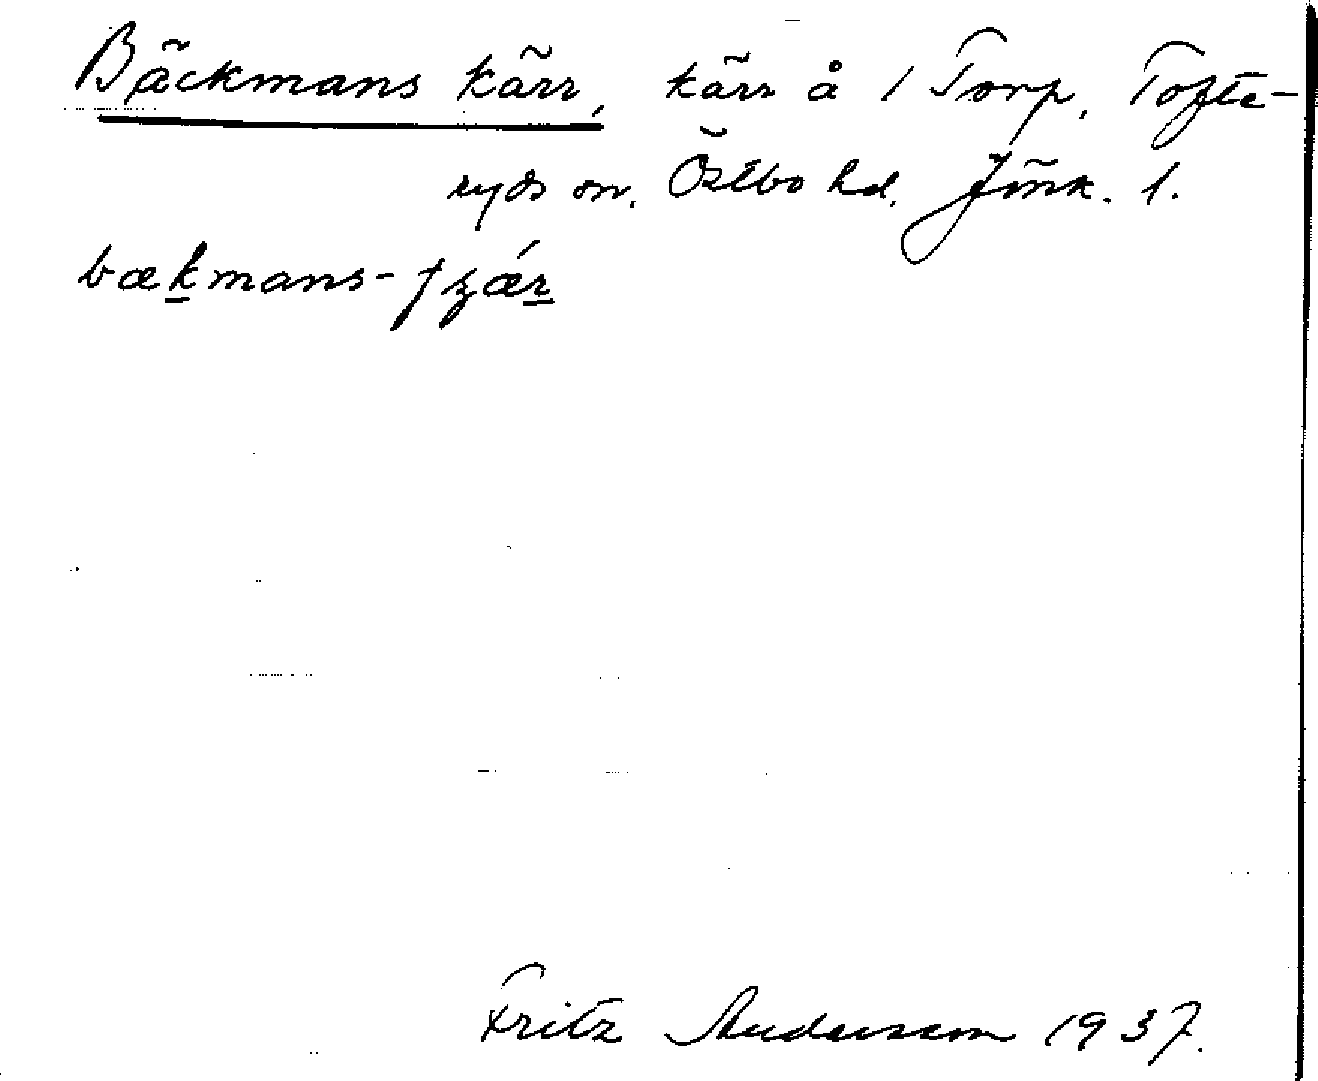 Bäckmans kärr, kärr å 1 Torp, Tofte-
ryds sn. Östbo hd. Jönk. l.
bækmans-
Fritz Andersson 1937.